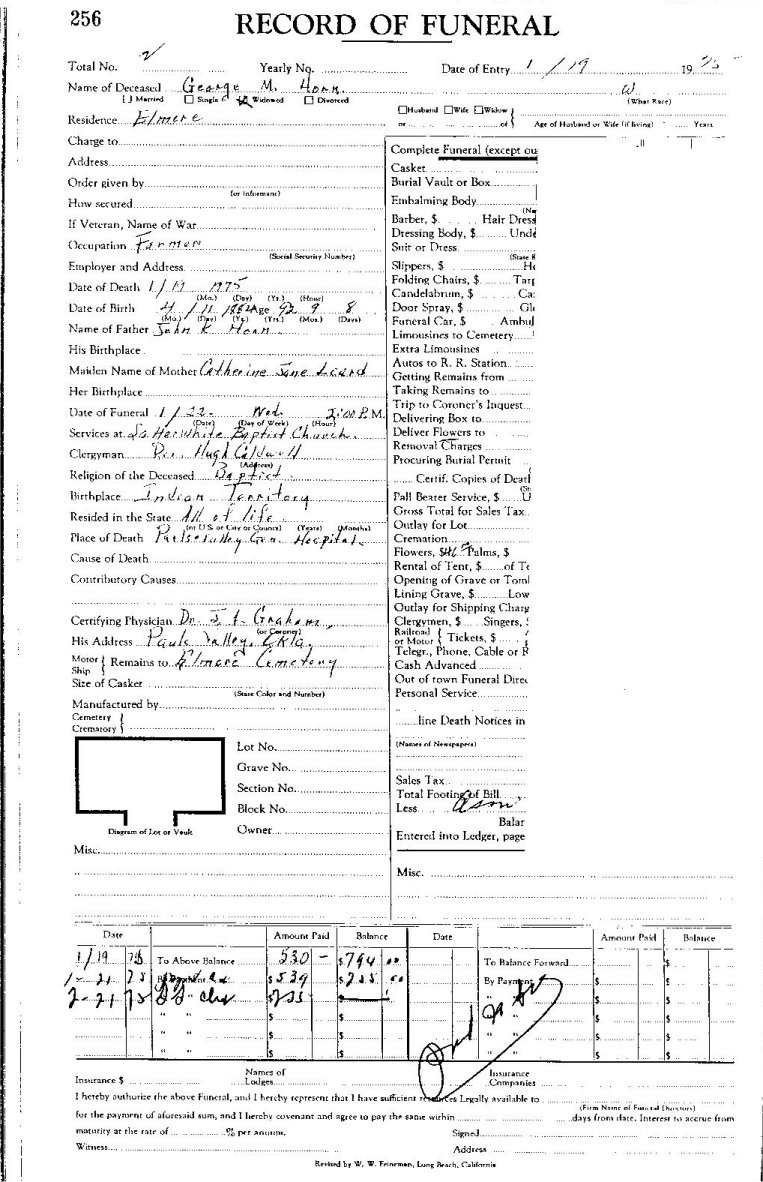 256
RECORD OF FUNERAL
Total No. 2 Yearly No. Date of Entry 1 / 19 1975
Name of Deceased George M. Horn W
[ ] Married Single Widowed Divorced (What Race)
Residence Elmore Husband Wife Widow
or of Age of Husband or Wife (if living) Years
Charge to
Address
Order given by
(or Informant)
How secured
If Veteran, Name of War
Occupation Farmer
(Social Security Number)
Employer and Address
Date of Death 1 / 19 1975
(Mo.) (Day) (Yr.) (Hour)
Date of Birth 4 / 11 1882 Age 92 9 8
(Mo.) (Day) (Yr.) (Yrs.) (Mos.) (Days)
Name of Father John R. Horn
His Birthplace
Maiden Name of Mother Catherine Jane
Her Birthplace
Date of Funeral 1 / 22 - Wed. 2:00 P.M.
(Date) (Day of Week) (Hour)
Services at White Baptist Church
Clergyman Rev. Hugh Caldwell
(Address)
Religion of the Deceased Baptist
Birthplace Indian Territory
Resided in the State All of life
(or U.S. or City or County) (Years) (Months)
Place of Death Pauls Valley Gen. Hospital
Cause of Death
Contributory Causes
Certifying Physician Dr. Graham
(or Coroner)
His Address Pauls Valley, Okla.
Motor Ship Remains to Elmore Cemetery
Size of Casket
(State Color and Number)
Manufactured by
Cemetery
Crematory
Lot No.
Grave No.
Section No.
Block No.
Diagram of Lot or Vault Owner
Misc.
Complete Funeral (except ou
Casket
Burial Vault or Box
Embalming Body
Barber, $ Hair Dress
Dressing Body, $ Unde
Suit or Dress
(State
Slippers, $ Ho
Folding Chairs, $ Tarp
Candelabrum, $ Ca
Door Spray, $ Gl
Funeral Car, $ Ambul
Limousines to Cemetery
Extra Limousines
Autos to R. R. Station
Getting Remains from
Taking Remains to
Trip to Coroner's Inquest
Delivering Box to
Deliver Flowers to
Removal Charges
Procuring Burial Permit
Certif. Copies of Deatl
Pall Bearer Service, $ U
Gross Total for Sales Tax
Outlay for Lot
Cremation
Flowers, $ Palms, $
Rental of Tent, $ of Te
Opening of Grave or Toml
Lining Grave, $ Low
Outlay for Shipping Charg
Clergymen, $ Singers,
Railroad or Motor Tickets, $
Telegr., Phone, Cable or R
Cash Advanced
Out of town Funeral Dire
Personal Service
line Death Notices in
(Names of Newspapers)
Sales Tax
Total Footing of Bill
Less
Balar
Entered into Ledger, page
Misc.
Date Amount Paid Balance Date Amount Paid Balance
1/19 75 To Above Balance 530 - $794 00 To Balance Forward $
1-21 75 By Payment $539 $255 00 By Payment $ $
2-21 75 $255 $
Insurance $ Names of Lodges Insurance Companies
I hereby authorize the above Funeral, and I hereby represent that I have sufficient resources Legally available to
(Firm Name of Funeral Directors)
for the payment of aforesaid sum, and I hereby covenant and agree to pay the same within days from date. Interest to accrue from
maturity at the rate of % per annum. Signed
Witness Address
Revised by W. W. Feineman, Long Beach, California